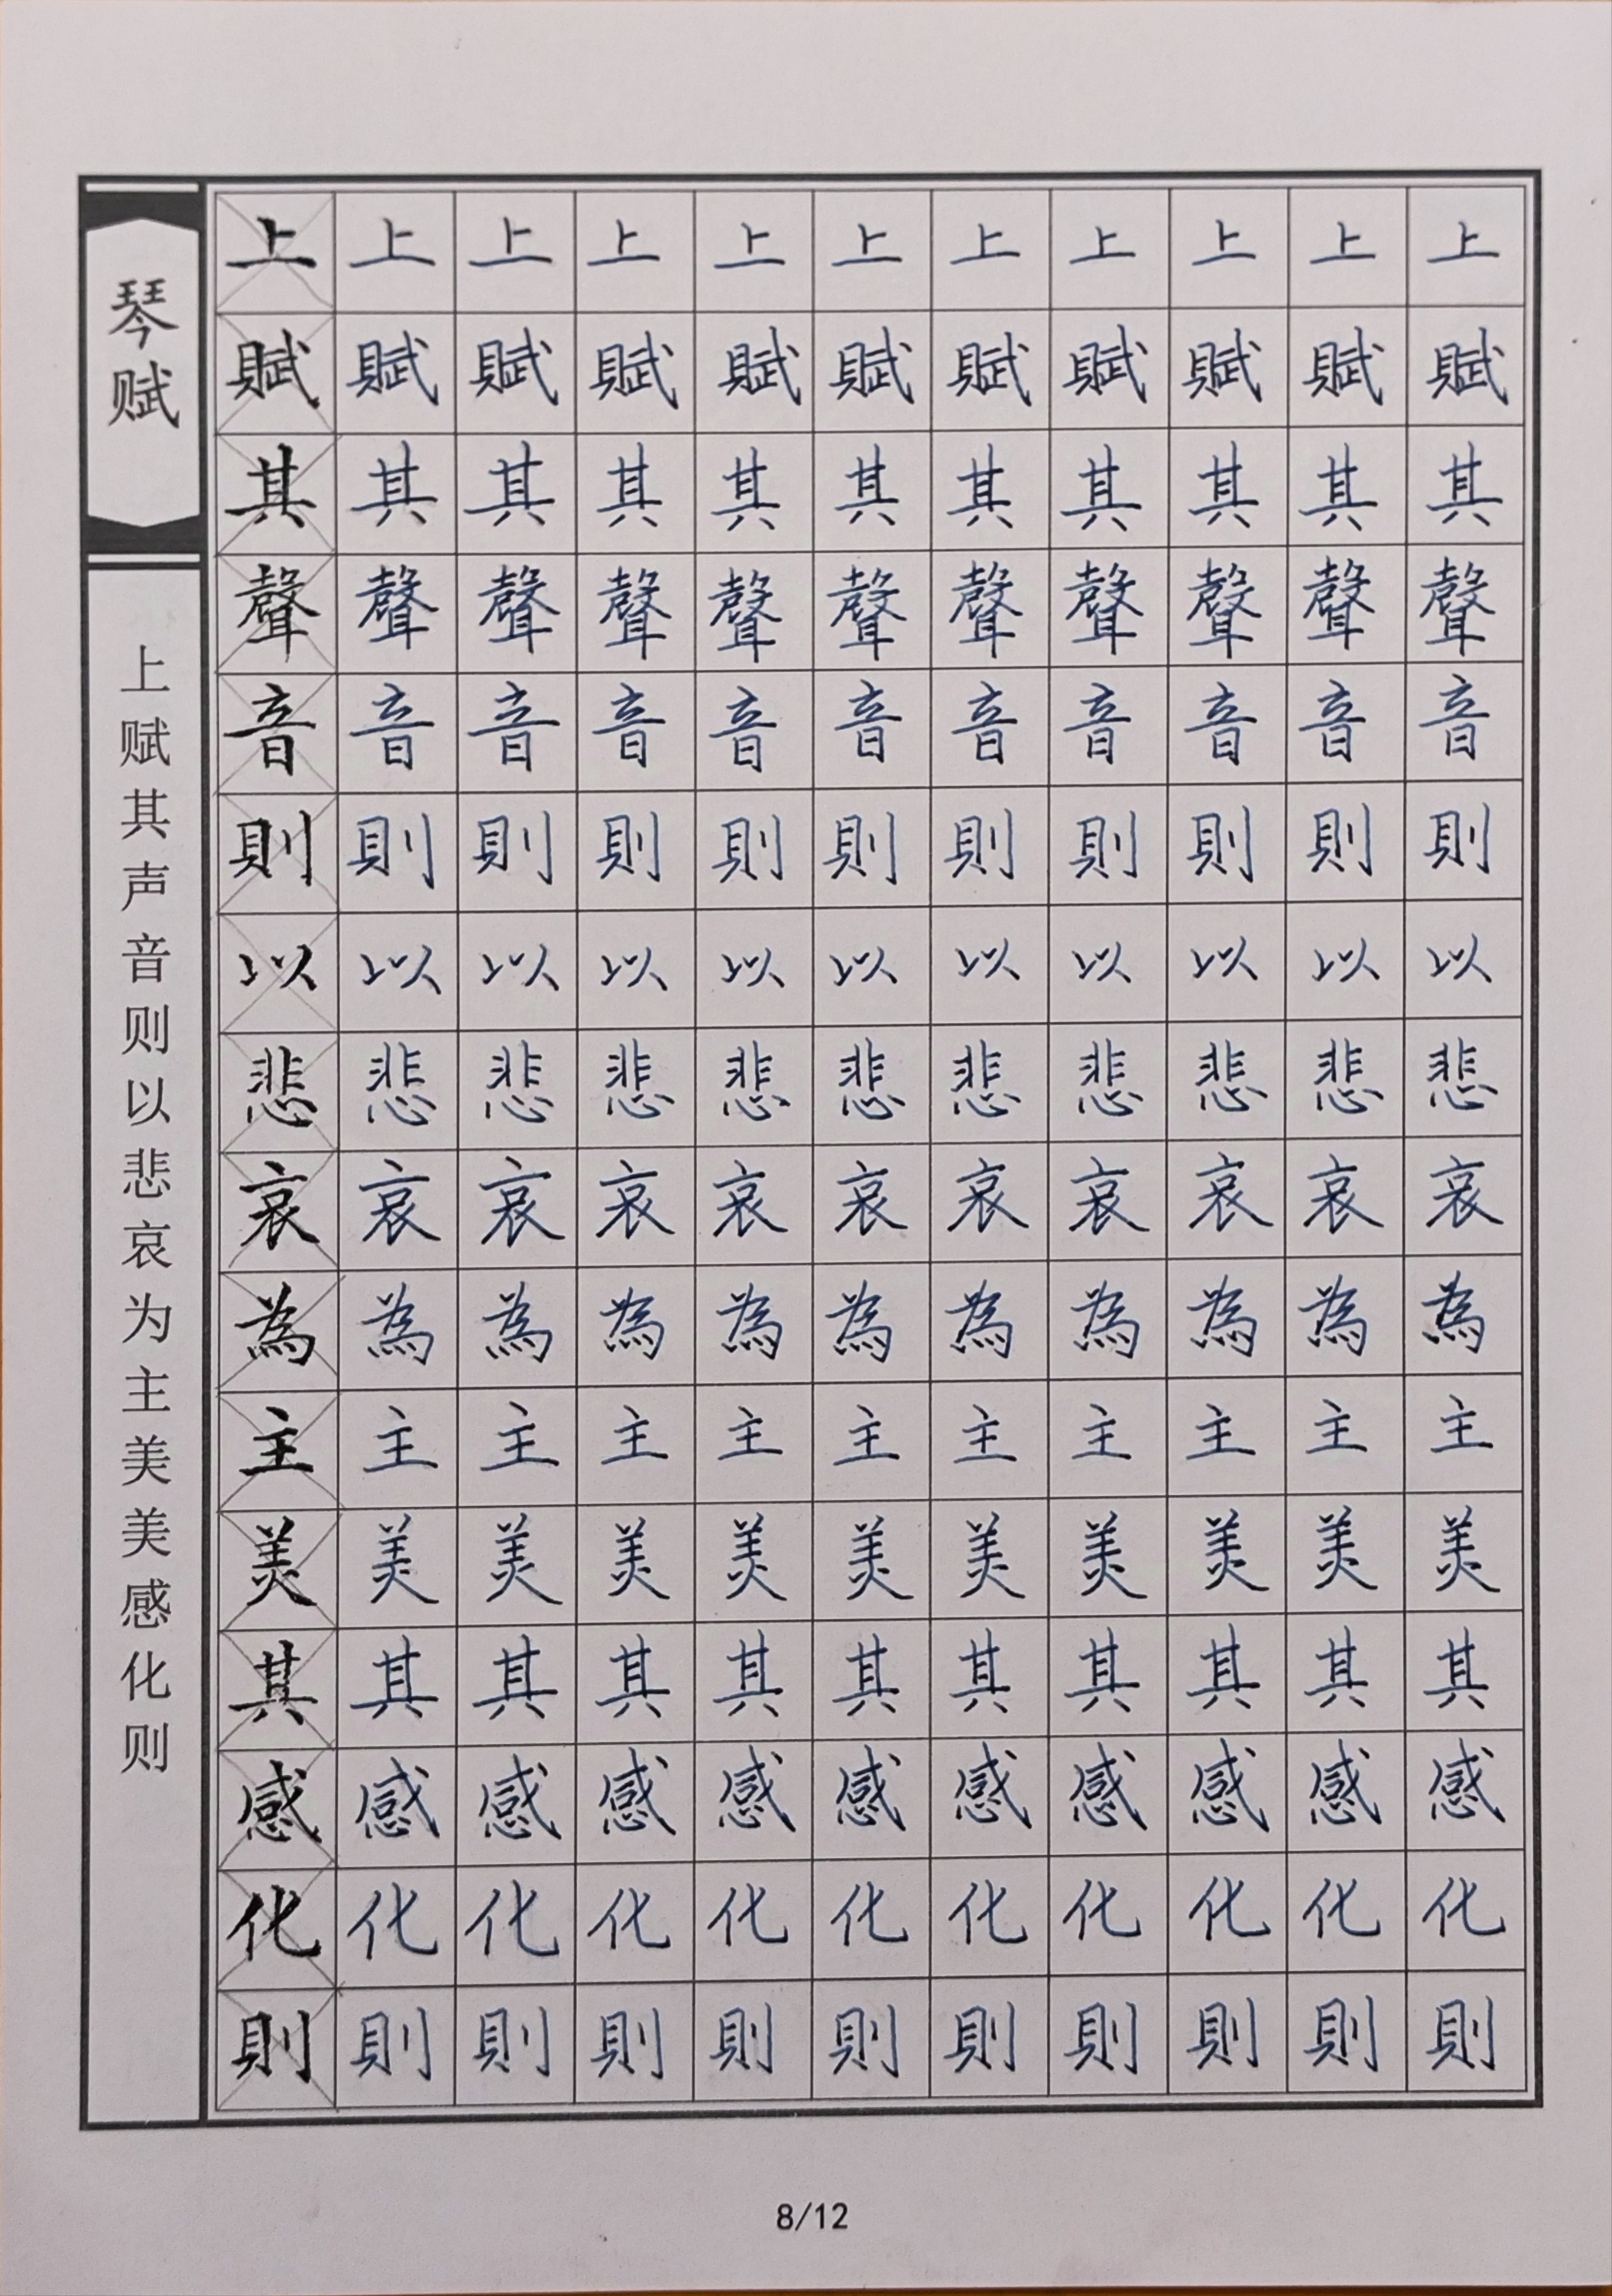 琴赋
上赋其声音则以悲哀为主美美感化则
上上上上上上上上上上上
賦賦賦賦賦賦賦賦賦賦賦
其其其其其其其其其其其
聲聲聲聲聲聲聲聲聲聲聲
音音音音音音音音音音音
則則則則則則則則則則則
以以以以以以以以以以以
悲悲悲悲悲悲悲悲悲悲悲
哀哀哀哀哀哀哀哀哀哀哀
為為為為為為為為為為為
主主主主主主主主主主主
美美美美美美美美美美美
其其其其其其其其其其其
感感感感感感感感感感感
化化化化化化化化化化化
則則則則則則則則則則則
8/12